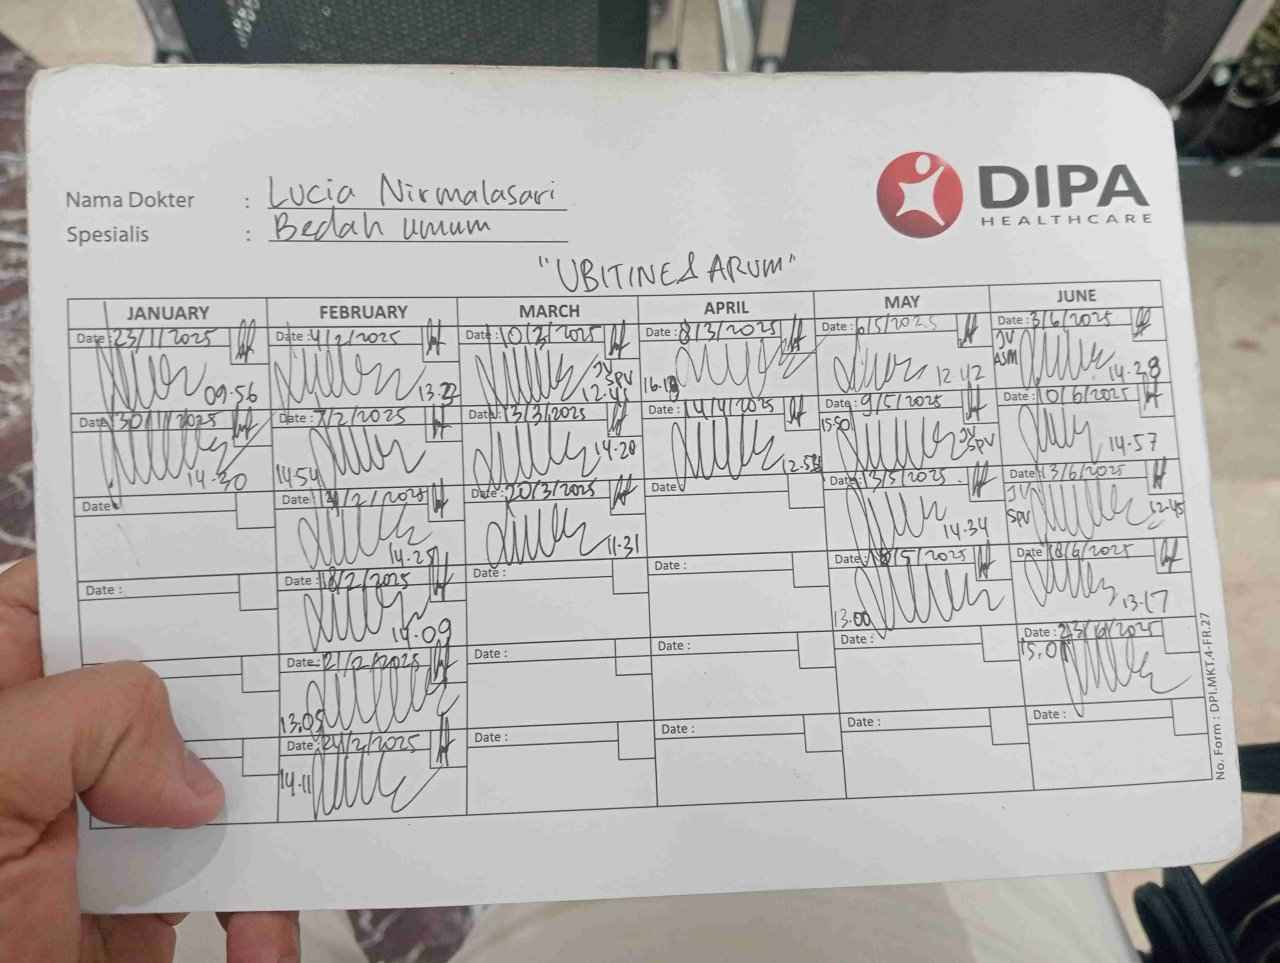 DIPA
HEALTHCARE
Nama Dokter : Lucia Nirmalasari
Spesialis : Bedah umum
"UBITINE & ARUM"
JANUARY FEBRUARY MARCH APRIL MAY JUNE
Date : 23/1/2025 Date : 4/2/2025 Date : 10/3/2025 Date : 8/3/2025 Date : 6/5/2025 Date : 3/6/2025
09.56 13.22 JV SPV 12.41 16.18 12.42 JV ASM 14.28
Date : 30/1/2025 Date : 7/2/2025 Date : 13/3/2025 Date : 14/4/2025 Date : 9/5/2025 Date : 10/6/2025
14.30 14.54 14.20 12.53 15.50 JV SPV 14.57
Date : Date : 2/2025 Date : 20/3/2025 Date : Date : 13/5/2025 Date : 13/6/2025
14.25 11.31 14.34 JV SPV 12.45
Date : Date : 18/2/2025 Date : Date : Date : 5/2025 Date : 18/6/2025
14.09 13.00 13.17
Date : 21/2/2025 Date : Date : Date : Date : 23/6/2025
13.05 15.01
Date : 24/2/2025 Date : Date : Date : Date :
14.11
No. Form : DPI.MKT.4-FR.27